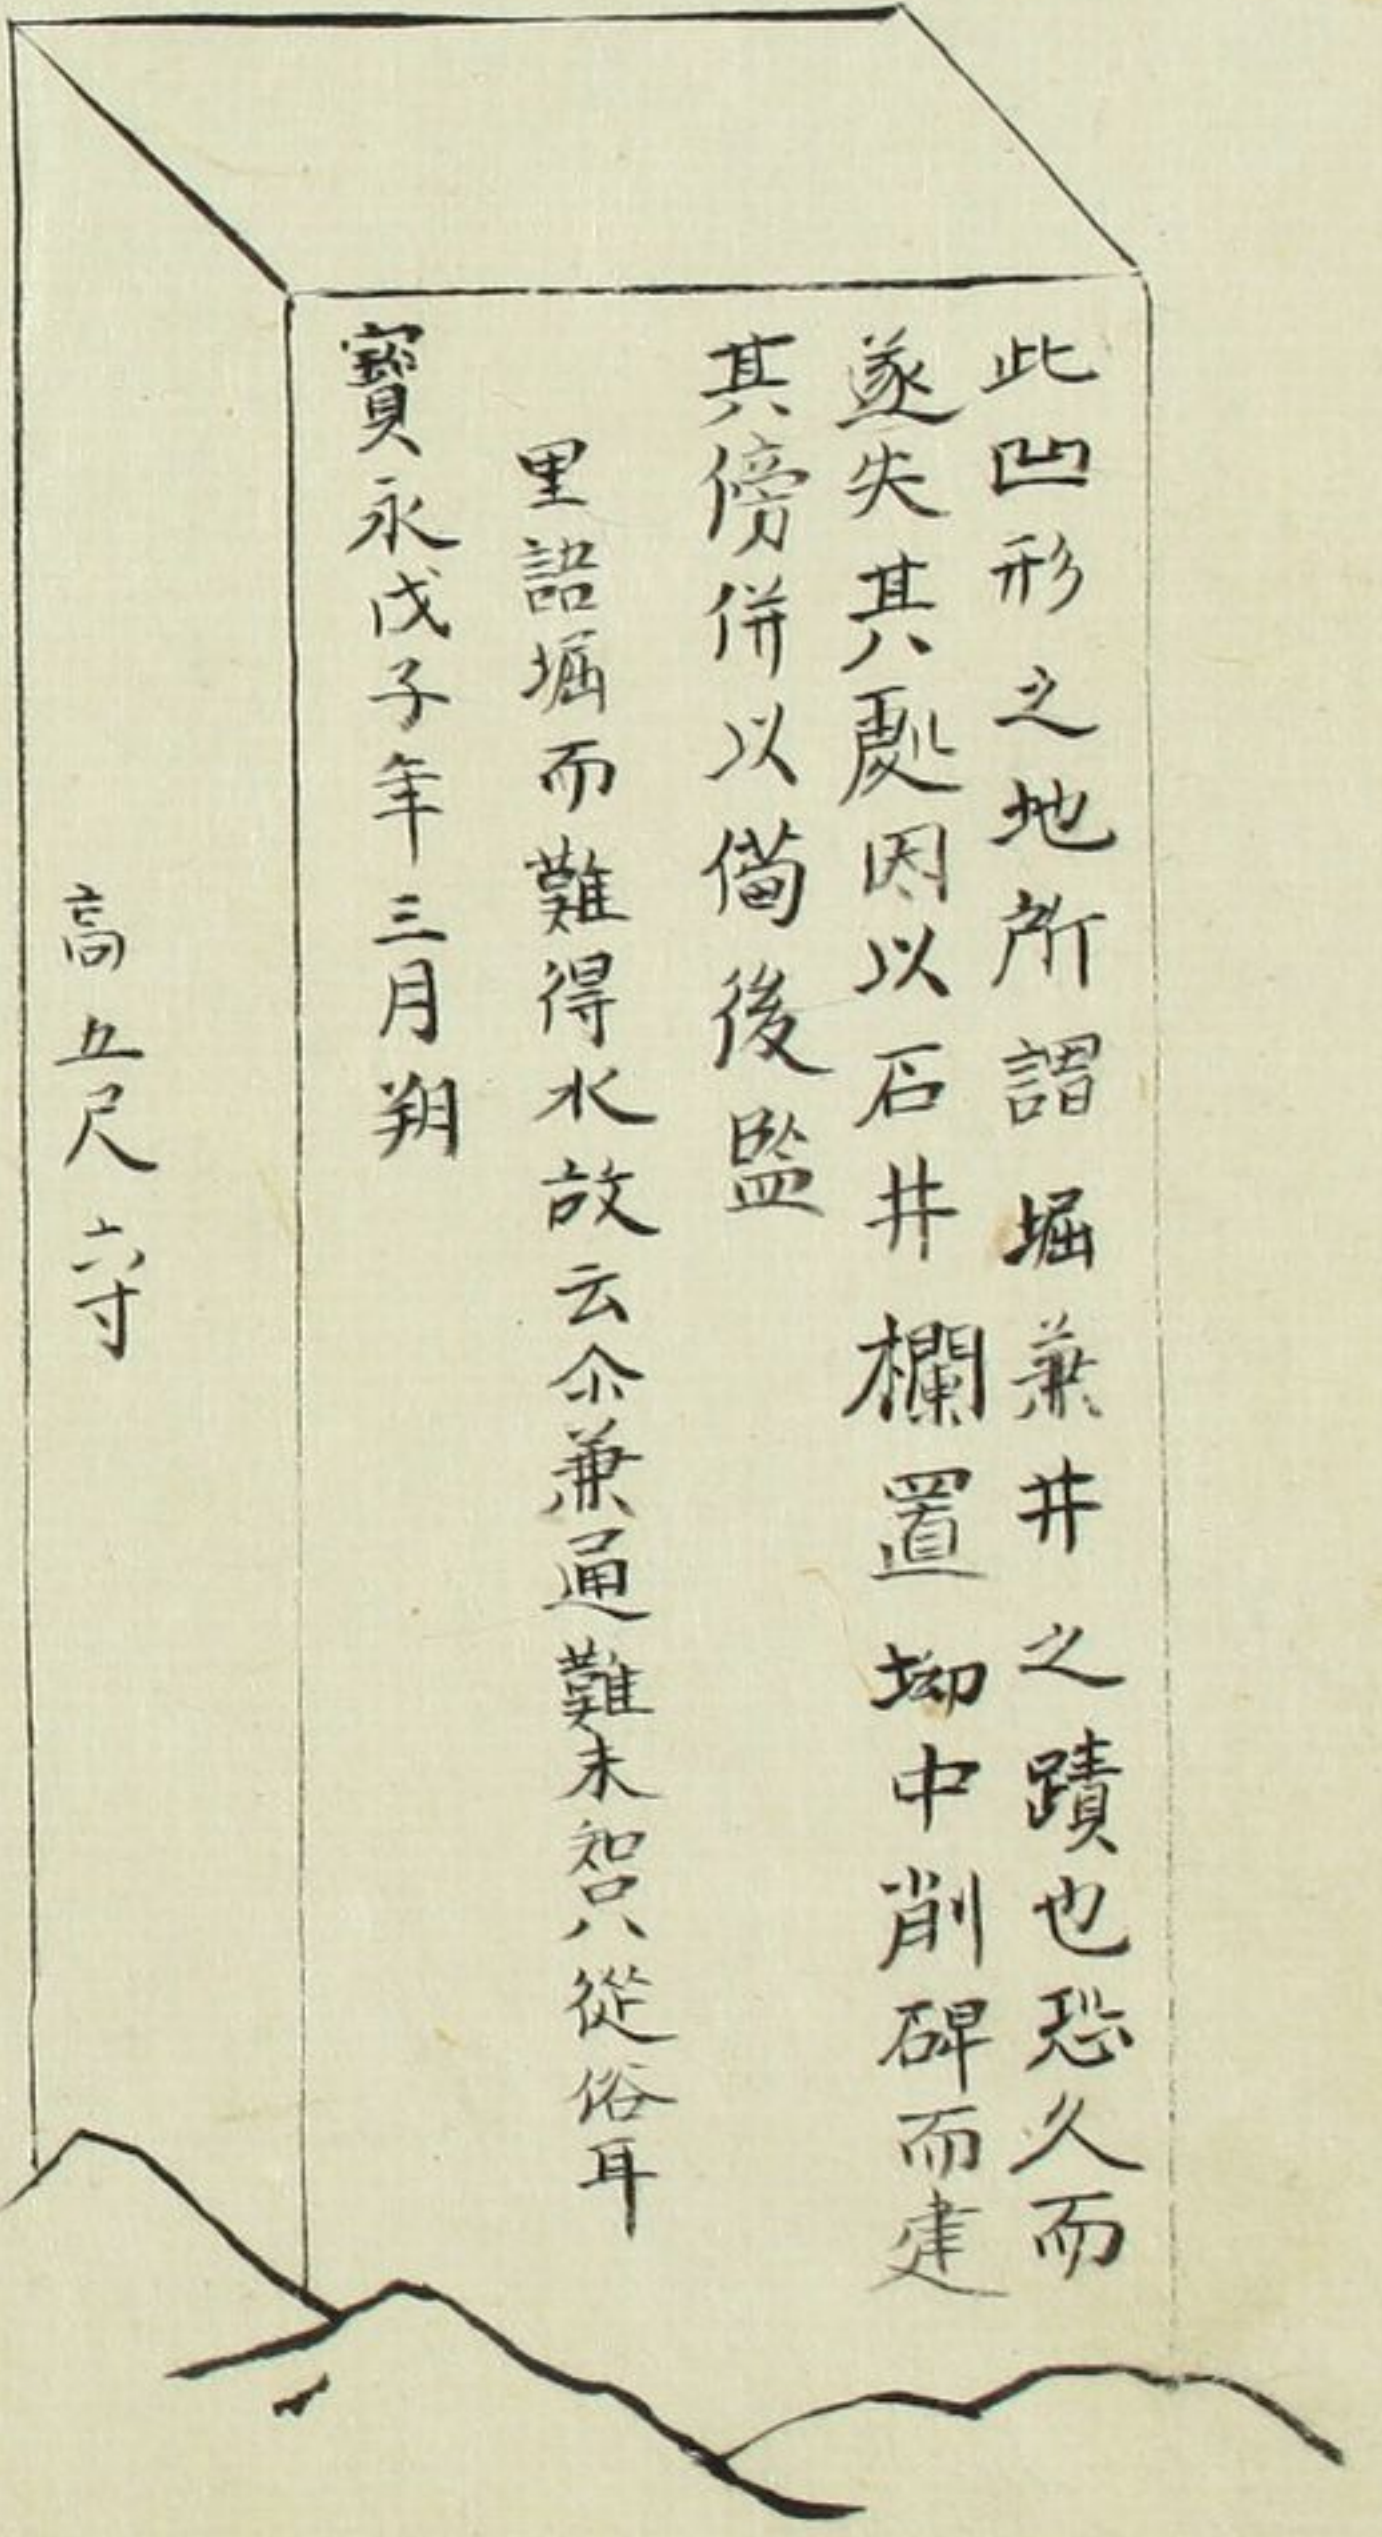 此凹形之地所謂堀兼井之蹟也恐久而
遂失其處因以石井欄置坳中削碑而建
其傍併以備後監
里語堀而難得水故云尒兼通難未知只從俗耳
寶永戊子年三月朔
高五尺六寸